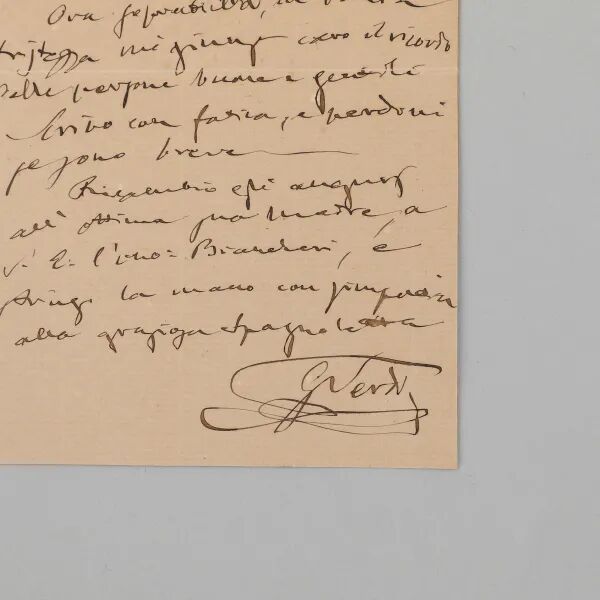 Ora
tristezza mi giunge caro il ricordo
delle persone buone e gentili
Scrivo con fatica, e perdoni
se sono breve
Ricambio gli augurj
all' ottima sua Madre, a
S. E. l'
Biancheri, e
stringo la mano con simpatia
alla graziosa Spagnoletta
G Verdi